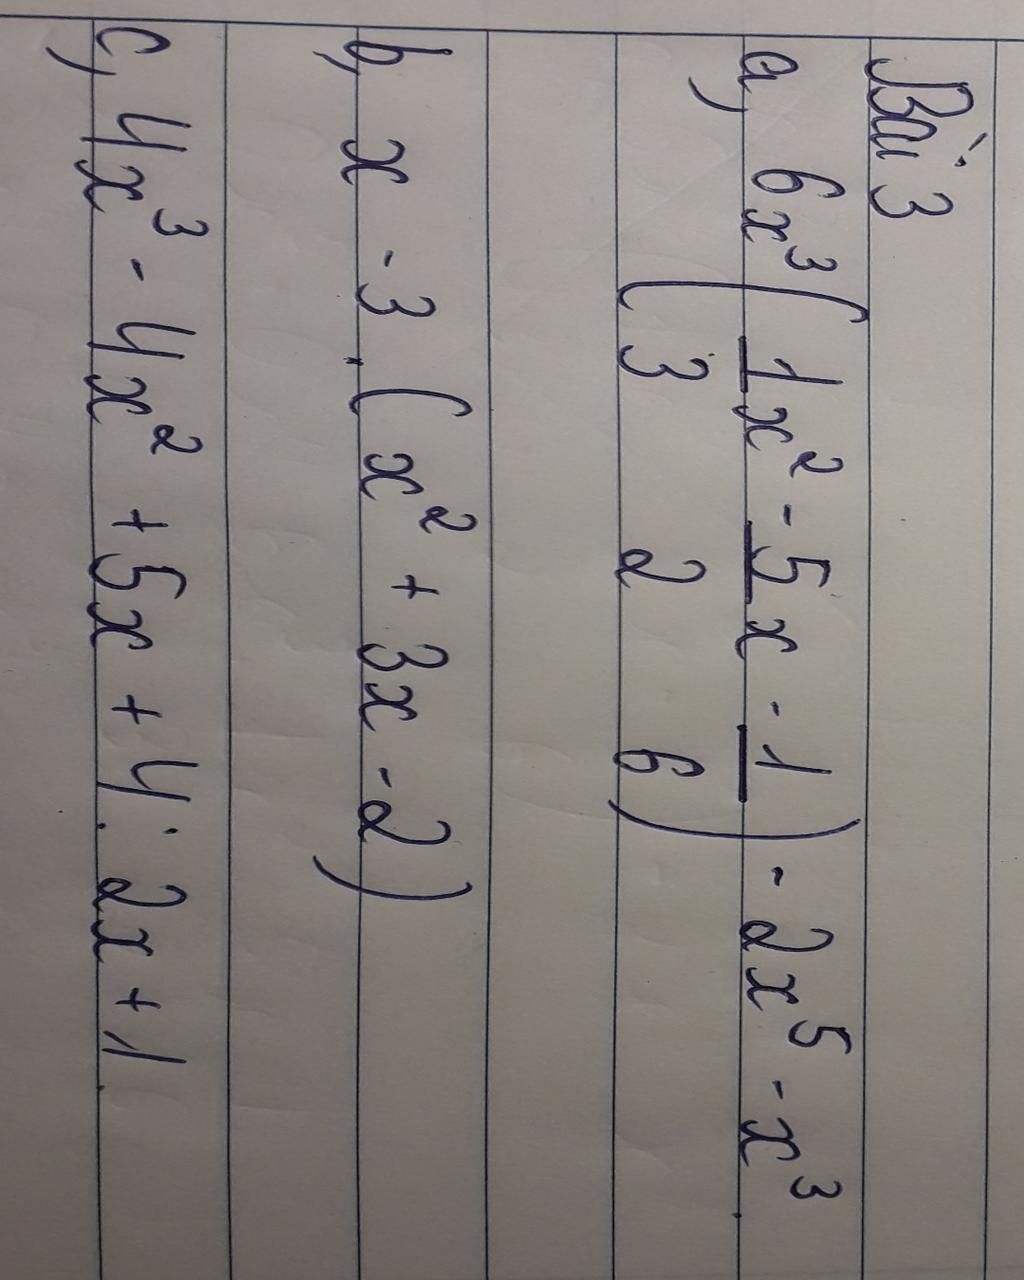 Bài 3
a, 6x³(1/3x² - 5/2x - 1/6) - 2x⁵ - x³.
b, x - 3 . (x² + 3x - 2)
c, 4x³ - 4x² + 5x + 4 : 2x + 1.